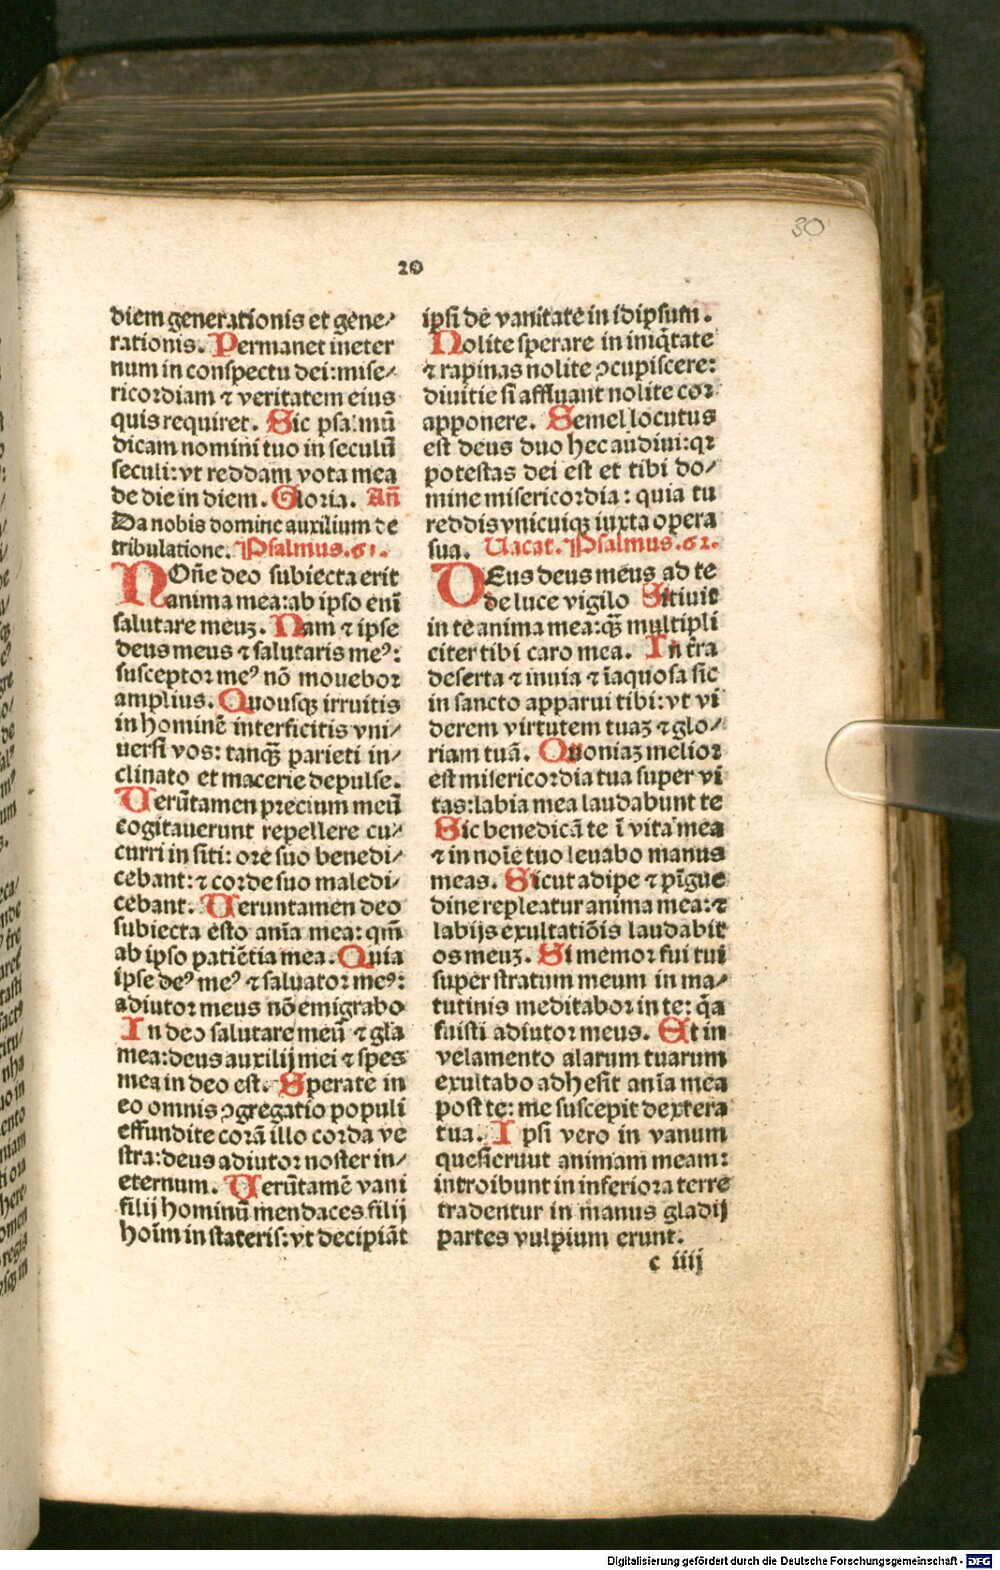 30
20
diem generationis et gene⸗
rationis. Permanet ineter
num in conspectu dei: mise⸗
ricordiam ⁊ veritatem eius
quis requiret. Sic psalmū
dicam nomini tuo in seculū
seculi: vt reddam vota mea
de die in diem. Gloria. Añ
Da nobis domine auxilium de
tribulatione. Psalmus .61.
NOñe deo subiecta erit
anima mea: ab ipso eni̅
salutare meuʒ. Nam ⁊ ipse
deus meus ⁊ salutaris meꝰ:
susceptor meꝰ nō mouebor
amplius. Quousqꝫ irruitis
in hominē interficitis vni⸗
uersi vos: tanqꝫ̄ parieti in⸗
clinato et macerie depulse.
Uerūtamen precium meū
cogitauerunt repellere cu⸗
curri in siti: ore suo benedi⸗
cebant: ⁊ corde suo maledi⸗
cebant. Ueruntamen deo
subiecta esto anīa mea: qm̄
ab ipso patiētia mea. Quia
ipse deꝰ meꝰ ⁊ saluator meꝰ:
adiutor meus nō emigrabo
In deo salutare meū ⁊ gla
mea: deus auxilij mei ⁊ spes
mea in deo est. Sperate in
eo omnis ꝯgregatio populi
effundite corā illo corda ve
stra: deus adiutor noster in⸗
eternum. Uerūtamē vani
filij hominū mendaces filij
hoīm in stateris: vt decipiāt
ipsi de vanitate in idipsum.
Nolite sperare in iniq̄tate
⁊ rapinas nolite ꝯcupiscere:
diuitie si affluant nolite cor
apponere. Semel locutus
est deus duo hec audiui: qꝛ
potestas dei est et tibi do⸗
mine misericordia: quia tu
reddis vnicuiqꝫ iuxta opera
sua. Uacat. Psalmus .62.
DEus deus meus ad te
de luce vigilo Sitiuit
in te anima mea: qꝫ̄ multipli
citer tibi caro mea. In tr̄a
deserta ⁊ inuia ⁊ īaquosa sic
in sancto apparui tibi: vt vi
derem virtutem tuaʒ ⁊ glo⸗
riam tuā. Quoniaʒ melior
est misericordia tua super vi
tas: labia mea laudabunt te
Sic benedicā te ī vita mea
⁊ in noīe tuo leuabo manus
meas. Sicut adipe ⁊ pīgue
dine repleatur anima mea: ⁊
labijs exultatiōis laudabit
os meuʒ. Si memor fui tui
super stratum meum in ma⸗
tutinis meditabor in te: q̄a
fuisti adiutor meus. Et in
velamento alarum tuarum
exultabo adhesit anīa mea
post te: me suscepit dextera
tua. Ipsi vero in vanum
quesierunt animam meam:
introibunt in inferiora terre
tradentur in manus gladij
partes vulpium erunt.
c iiij
Digitalisierung gefördert durch die Deutsche Forschungsgemeinschaft - DFG